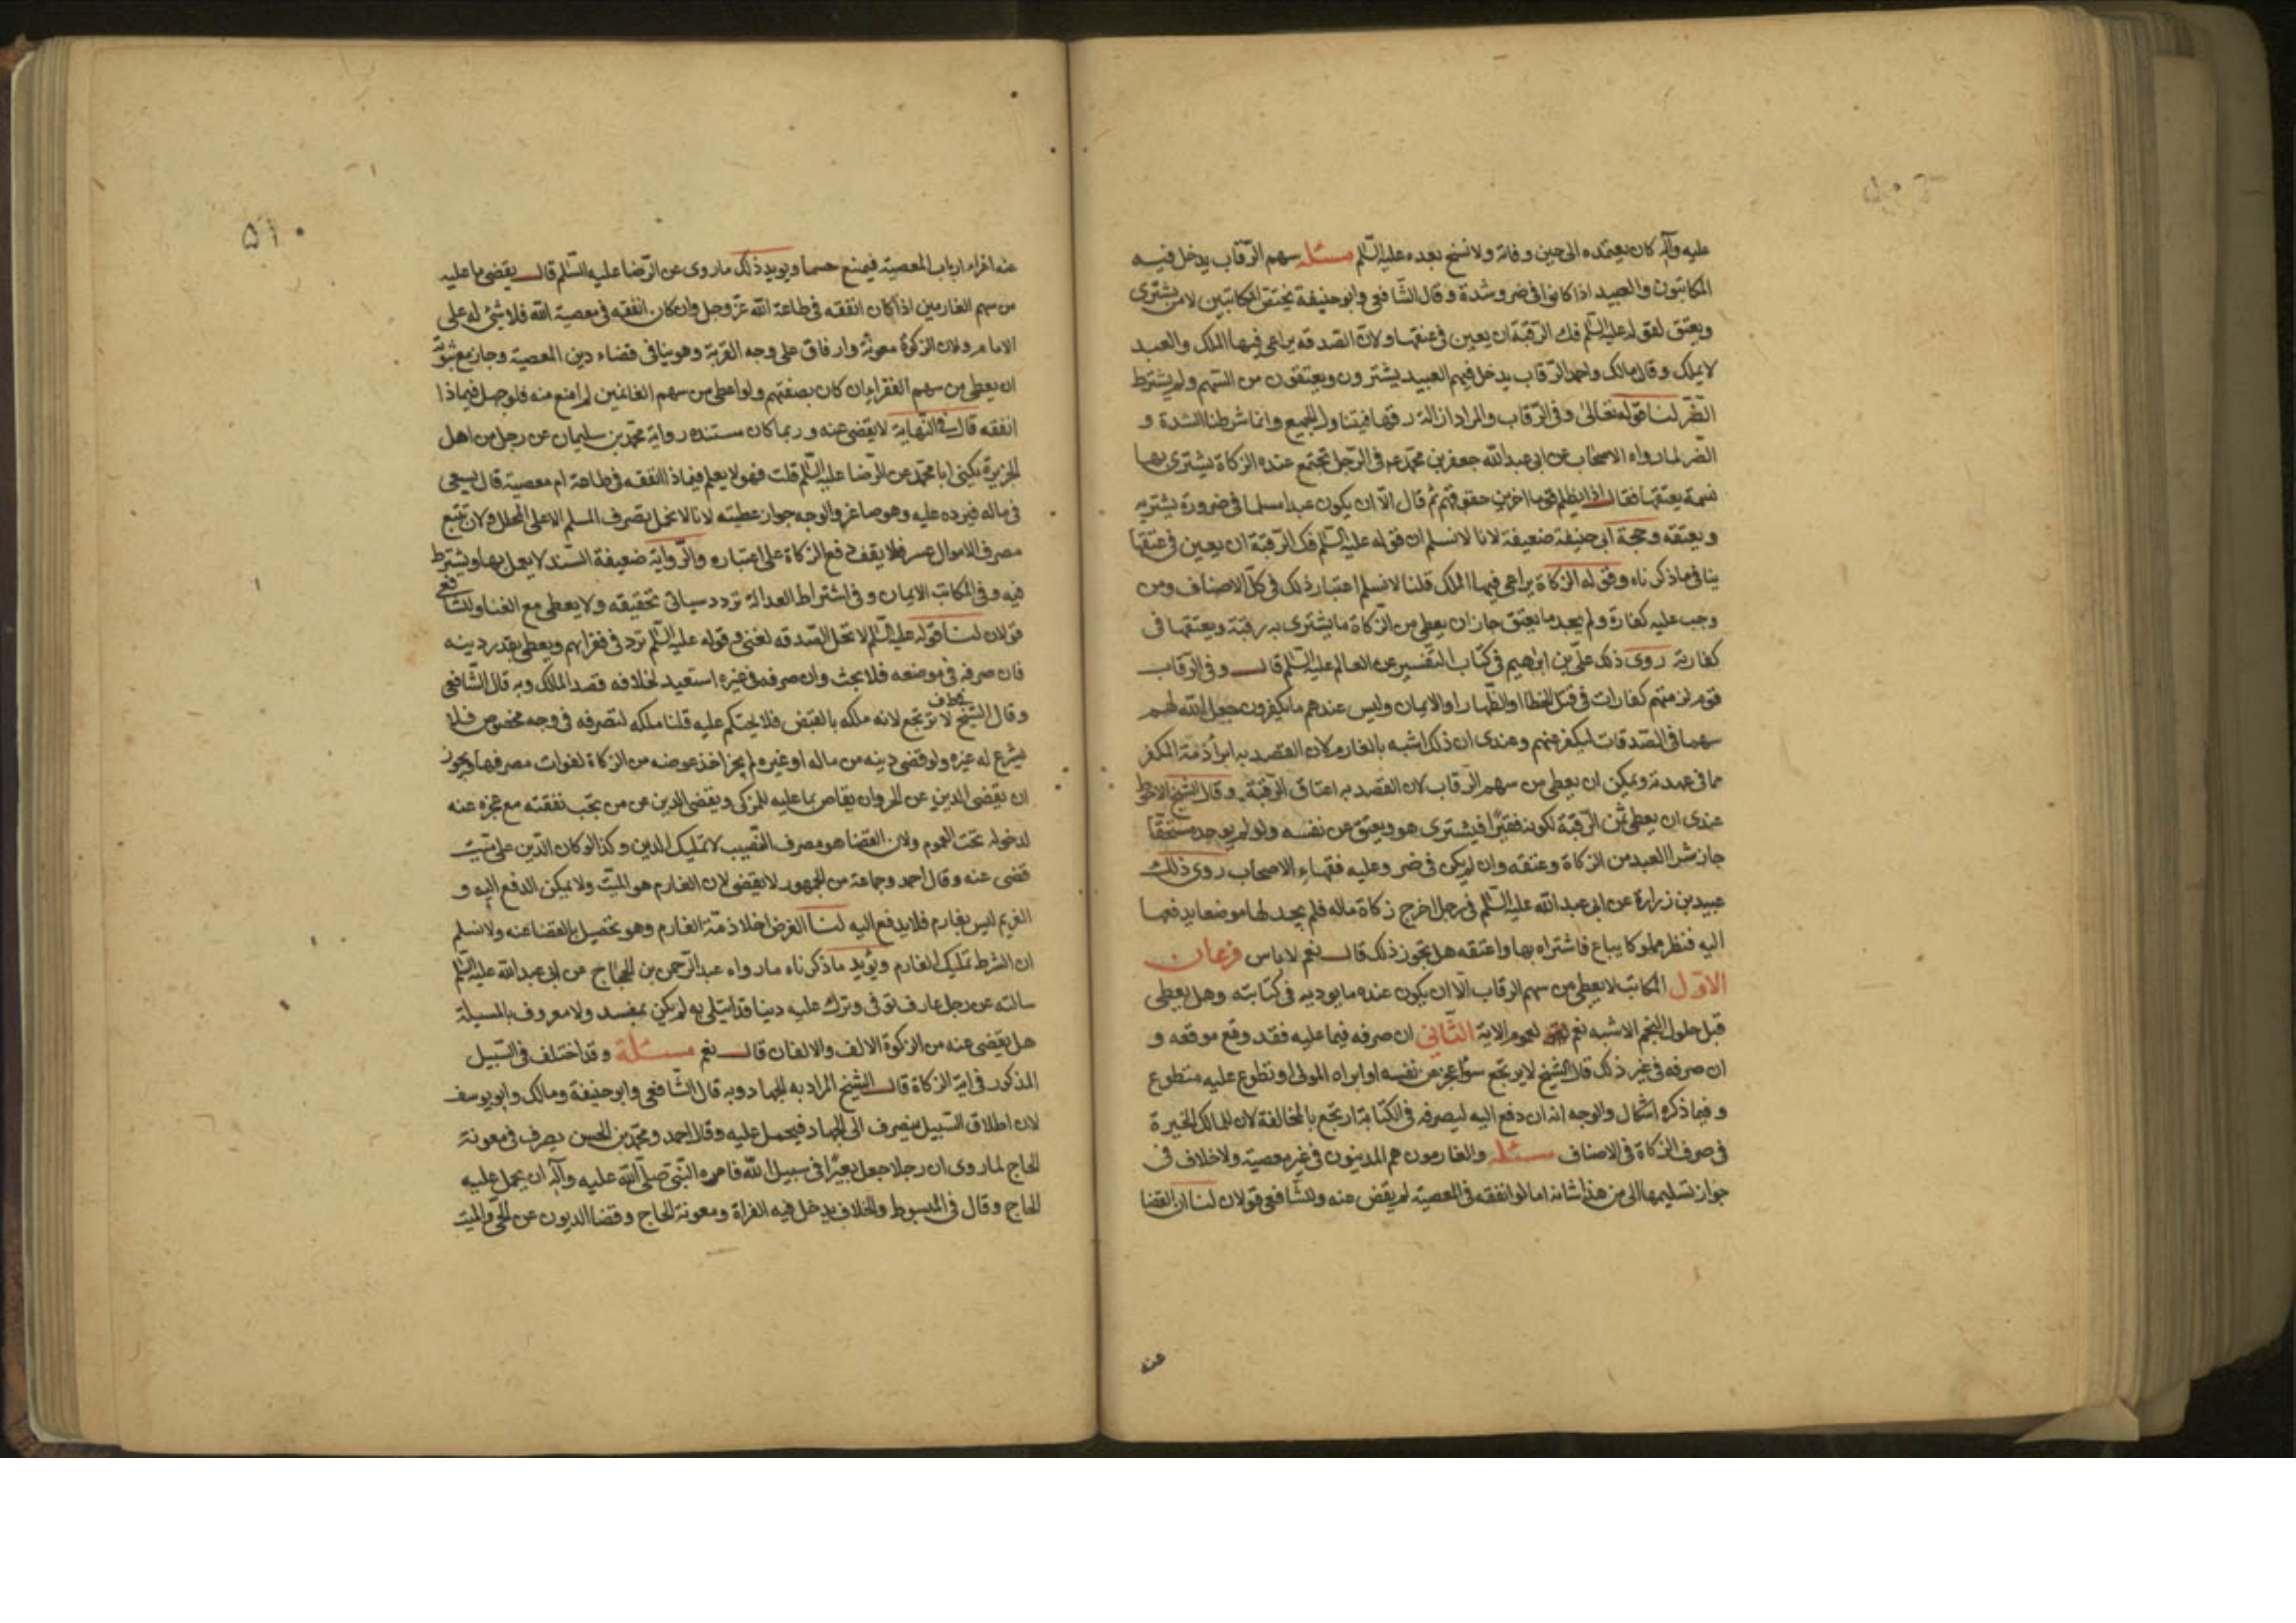 عليه وآله كان يعتمده الى حين وفاته ولا نسخ بعده عليه السلم مسئله سهم الرقاب يدخل فيه
المكاتبون والعبيد اذا كانوا فى ضر وشدة وقال الشافعى وابوحنيفة يختص المكاتبين لا من يشترى
ويعتق لقوله عليه السلم فك الرقبة ان يعين فى عتقها ولان الصدقه يراعى فيها الملك والعبد
لا يملك وقال مالك واحمد الرقاب يدخل فيهم العبيد يشترون ويعتقون من السهم ولم يشترط
الضر لنا قوله تعالى وفى الرقاب والمراد ازالة رقها فيتناول الجميع وانما شرطنا الشدة و
الضر لما رواه الاصحاب عن ابى عبد الله جعفر بن محمد ع فى الرجل تجتمع عنده الزكاة يشترى بها
نسمة يعتقها فقال اذا يظلم قوما اخرين حقوقهم ثم قال الا ان يكون عبدا مسلما فى ضرورة يشتريه
ويعتقه وحجة ابى حنيفة ضعيفة لانا لا نسلم ان قوله عليه السلم فك الرقبة ان يعين فى عتقها
ينافى ماذكرناه وقوله الزكاة يراعى فيها الملك قلنا لا نسلم اعتبار ذلك فى كل الاصناف ومن
وجب عليه كفارة ولم يجد ما يعتق جاز ان يعطى من الزكاة ما يشترى به رقبة ويعتقها فى
كفارته روى ذلك على بن ابرهيم فى كتاب التفسير عن العالم عليه السلم قال وفى الرقاب
قوم لزمتهم كفارات فى قتل الخطا او الظهار او الايمان وليس عندهم ما يكفرون جعل الله لهم
سهما فى الصدقات ليكفر عنهم وعندى ان ذلك اشبه بالغارم لان القصد به ابرأ ذمة المكفر
مما فى عهدته ويمكن ان يعطى من سهم الرقاب لان القصد به اعتاق الرقبة وقال الشيخ الاحوط
عندى ان يعطى ثمن الرقبة لكونه فقيرا فيشترى هو ويعتق عن نفسه ولو لم يوجد مستحقا
جاز شرا العبد من الزكاة وعتقه وان لم يكن فى ضر وعليه فقهاء الاصحاب روى ذلك
عبيد بن زرارة عن ابى عبد الله عليه السلم فى رجل اخرج زكاة ماله فلم يجد لها موضعا يدفعها
اليه فنظر مملوكا يباع فاشتراه بها واعتقه هل يجوز ذلك قال نعم لا باس فرعان
الاول المكاتب لا يعطى من سهم الرقاب الا ان يكون عنده ما يوديه فى كتابته وهل يعطى
قبل حلول النجم الاشبه نعم لعموم الاية الثانى ان صرفه فيما عليه فقد وقع موقعه و
ان صرفه فى غير ذلك قال الشيخ لا يرتجع سوأ عجز عن نفسه او ابراه المولى او تطوع عليه متطوع
وفيما ذكره اشكال والوجه انه ان دفع اليه ليصرفه فى الكتابة ارتجع بالمخالفة لان للمالك الخيرة
فى صرف الزكاة فى الاصناف مسئله والغارمون هم المدينون فى غير معصية ولا خلاف فى
جواز تسليمها الى من هذا شانه اما لو انفقه فى المعصية لم يقض عنه وللشافعى قولان لنا ان القضا
عنه
٥١٠
عنه اغراء ارباب المعصية فيمنع حسما ويويد ذلك ما روى عن الرضا عليه السلم قال يقضى ما عليه
من سهم الغارمين اذا كان انفقه فى طاعة الله عز وجل وان كان انفقه فى معصية الله فلا شئ له على
الامام ولان الزكوة معونة وارفاق على وجه القربة وهو ينافى قضاء دين المعصية وجاز مع توبته
ان يعطى من سهم الفقراء ان كان بصفتهم ولو اعطى من سهم الغانمين لم امنع منه فلو جهل فيماذا
انفقه قال فى النهاية لا يقضى عنه وربما كان مستنده رواية محمد بن سليمان عن رجل من اهل
الجزيرة يكنى ابا محمد عن الرضا عليه السلم قلت فهو لا يعلم فيماذا انفقه فى طاعة ام معصية قال يسعى
فى ماله فيرده عليه وهو صاغر والوجه جواز عطيته لانا لا نحمل تصرف المسلم الا على المحلل ولان تتبع
مصرف الاموال عسر فلا يقف دفع الزكاة على اعتباره والرواية ضعيفة السند لا يعمل بها ويشترط
فيه وفى المكاتب الايمان وفى اشتراط العدالة تردد سياتى تحقيقه ولا يعطى مع الغنا وللشافعى
قولان لنا قوله عليه السلم لا تحل الصدقه لغنى وقوله عليه السلم ترد فى فقرائهم ويعطى بقدر دينه
فان صرفه فى موضعه فلا بحث وان صرفه فى غيره استعيد لخلافه قصد المالك وبه قال الشافعى
وقال الشيخ لا يرتجع لانه ملكه بالقبض فلا يحتكم عليه قلنا ملكه لتصرفه فى وجه مخصوص فلا
يشرع له غيره ولو قضى دينه من ماله او غيره لم يجز اخذ عوضه من الزكاة لفوات مصرفها ويجوز
ان يقضى الدين عن الحر وان يقاص بما عليه للمزكى ويقضى الدين عن من تجب نفقته مع عجزه عنه
لدخوله تحت العموم ولان القضا هو مصرف النصيب لا تمليك المدين وكذا لو كان الدين على ميت
قضى عنه وقال احمد وجماعة من الجمهور لا يقضى لان الغارم هو الميت ولا يمكن الدفع اليه و
الغريم ليس بغارم فلا يدفع اليه لنا الغرض اخلا ذمة الغارم وهو يحصل بالقضا عنه ولا نسلم
ان الشرط تمليك الغارم ويؤيد ماذكرناه مارواه عبد الرحمن بن الحجاج عن ابى عبد الله عليه السلم
سالته عن رجل عارف توفى وترك عليه دينا قد ابتلى به لم يكن بمفسد ولا معروف بالمسيلة
هل يقضى عنه من الزكوة الالف والالفان قال نعم مسئلة وقد اختلف فى السبيل
المذكور فى اية الزكاة قال الشيخ المراد به الجهاد وبه قال الشافعى وابو حنيفة ومالك وابو يوسف
لان اطلاق السبيل ينصرف الى الجهاد فيحمل عليه وقال احمد ومحمد بن الحسن يصرف فى معونة
الحاج لما روى ان رجلا جعل بعيرا فى سبيل الله فامره النبى صلى الله عليه وآله ان يحمل عليه
الحاج وقال فى المبسوط والخلاف يدخل فيه الغزاة ومعونة الحاج وقضا الديون عن الحى والميت